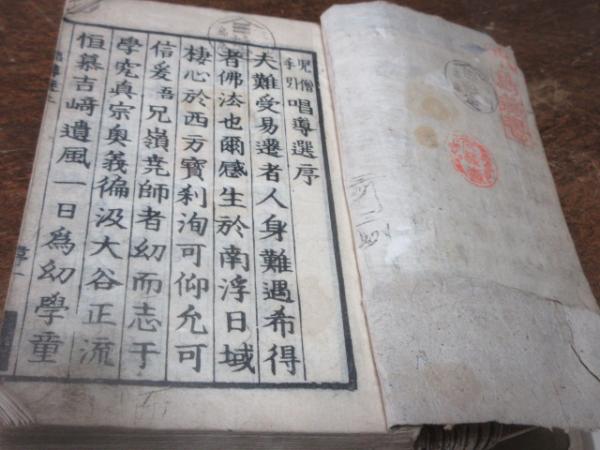 児僧手引唱導選序
夫難受易遷者人身難遇希得
者佛法也爾感生於南浮日域
棲心於西方寶刹洵可仰允可
信爰吾兄嶺堯師者幼而志于
學究真宗奥義徧汲大谷正流
恒慕吉﨑遺風一日為幼學童